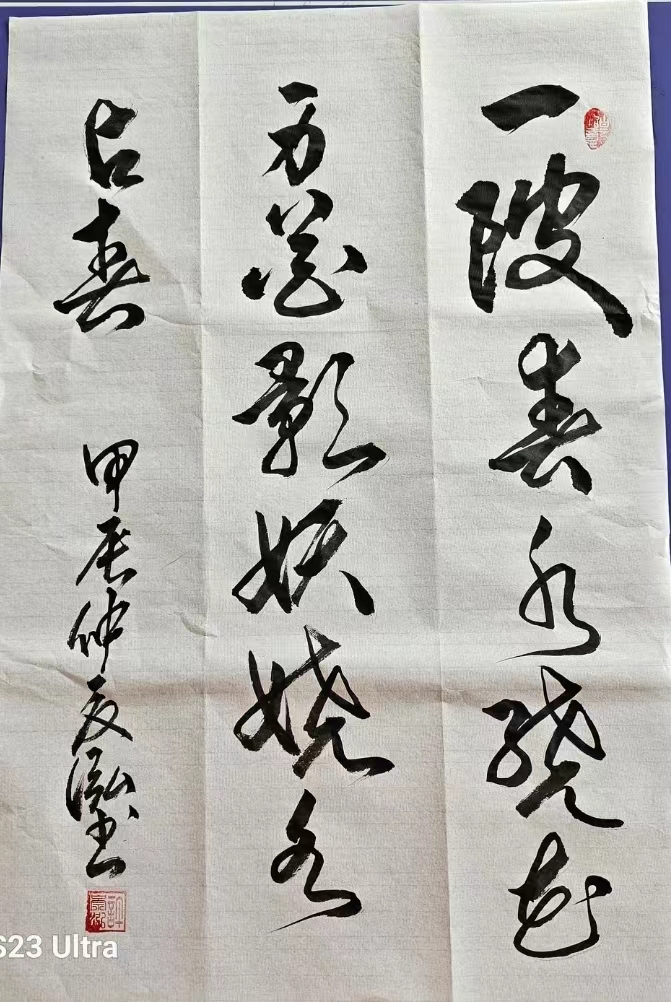 一陂春水绕花
身花影妖娆各
占春
甲辰仲夏泓书
S23 Ultra